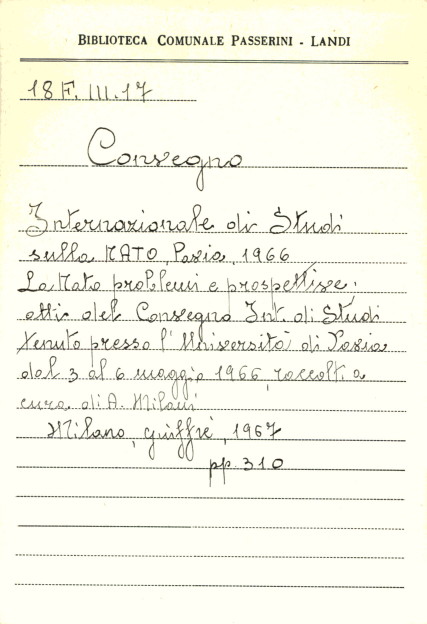 BIBLIOTECA COMUNALE PASSERINI - LANDI
18 F. III. 17
Convegno
Internazionale di Studi
sulla NATO, Pavia, 1966
La Nato problemi e prospettive:
atti del Convegno Int. di Studi
tenuto presso l'Università di Pavia
dal 3 al 6 maggio 1966, raccolti a
cura di A. Milani
Milano, giuffrè, 1967
pp. 310